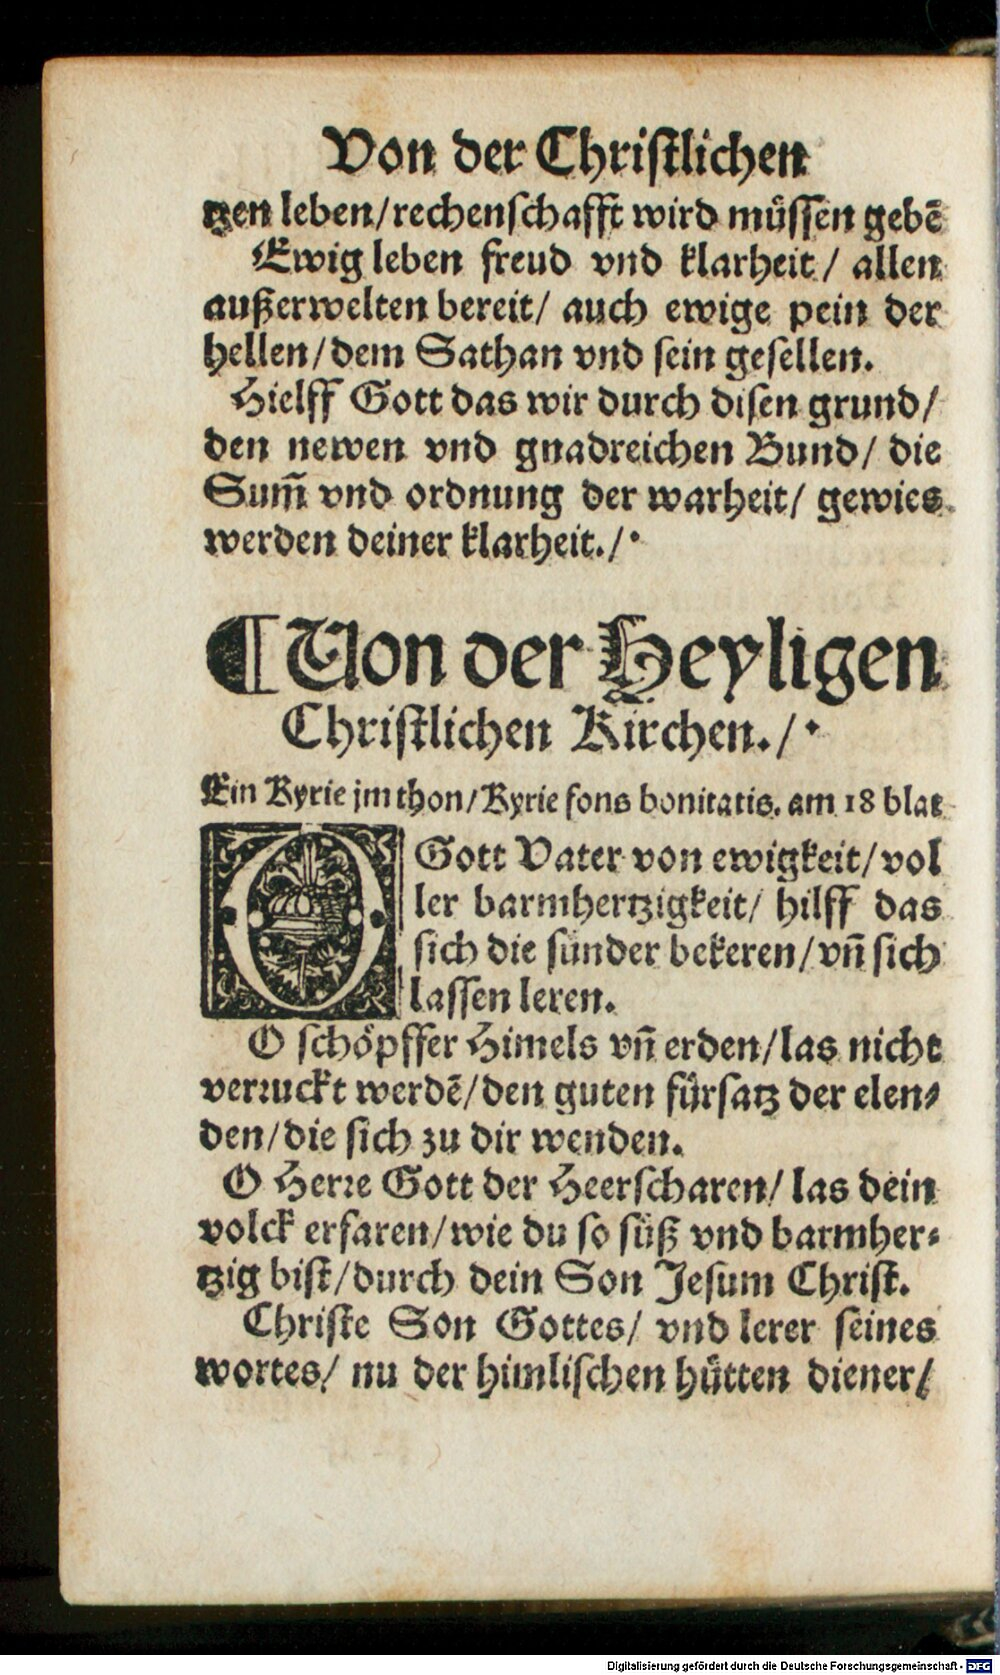 Von der Christlichen
tzen leben/rechenschafft wird müssen gebē
Ewig leben freud vnd klarheit/ allen
außerwelten bereit/ auch ewige pein der
hellen/dem Sathan vnd sein gesellen.
Hielff Gott das wir durch disen grund/
den newen vnd gnadreichen Bund/ die
Sum̄ vnd ordnung der warheit/ gewies
werden deiner klarheit./·
¶ Von der Heyligen
Christlichen Kirchen./·
Ein Kyrie jm thon/Kyrie fons bonitatis. am 18 blat
O Gott Vater von ewigkeit/vol
ler barmhertzigkeit/ hilff das
sich die sünder bekeren/vn̄ sich
lassen leren.
O schöpffer Himels vn̄ erden/las nicht
verruckt werdē/den guten fürsatz der elen⸗
den/die sich zu dir wenden.
O Herre Gott der Heerscharen/ las dein
volck erfaren/wie du so süß vnd barmher⸗
tzig bist/durch dein Son Jesum Christ.
Christe Son Gottes/ vnd lerer seines
wortes/ nu der himlischen hütten diener/
Digitalisierung gefördert durch die Deutsche Forschungsgemeinschaft - DFG